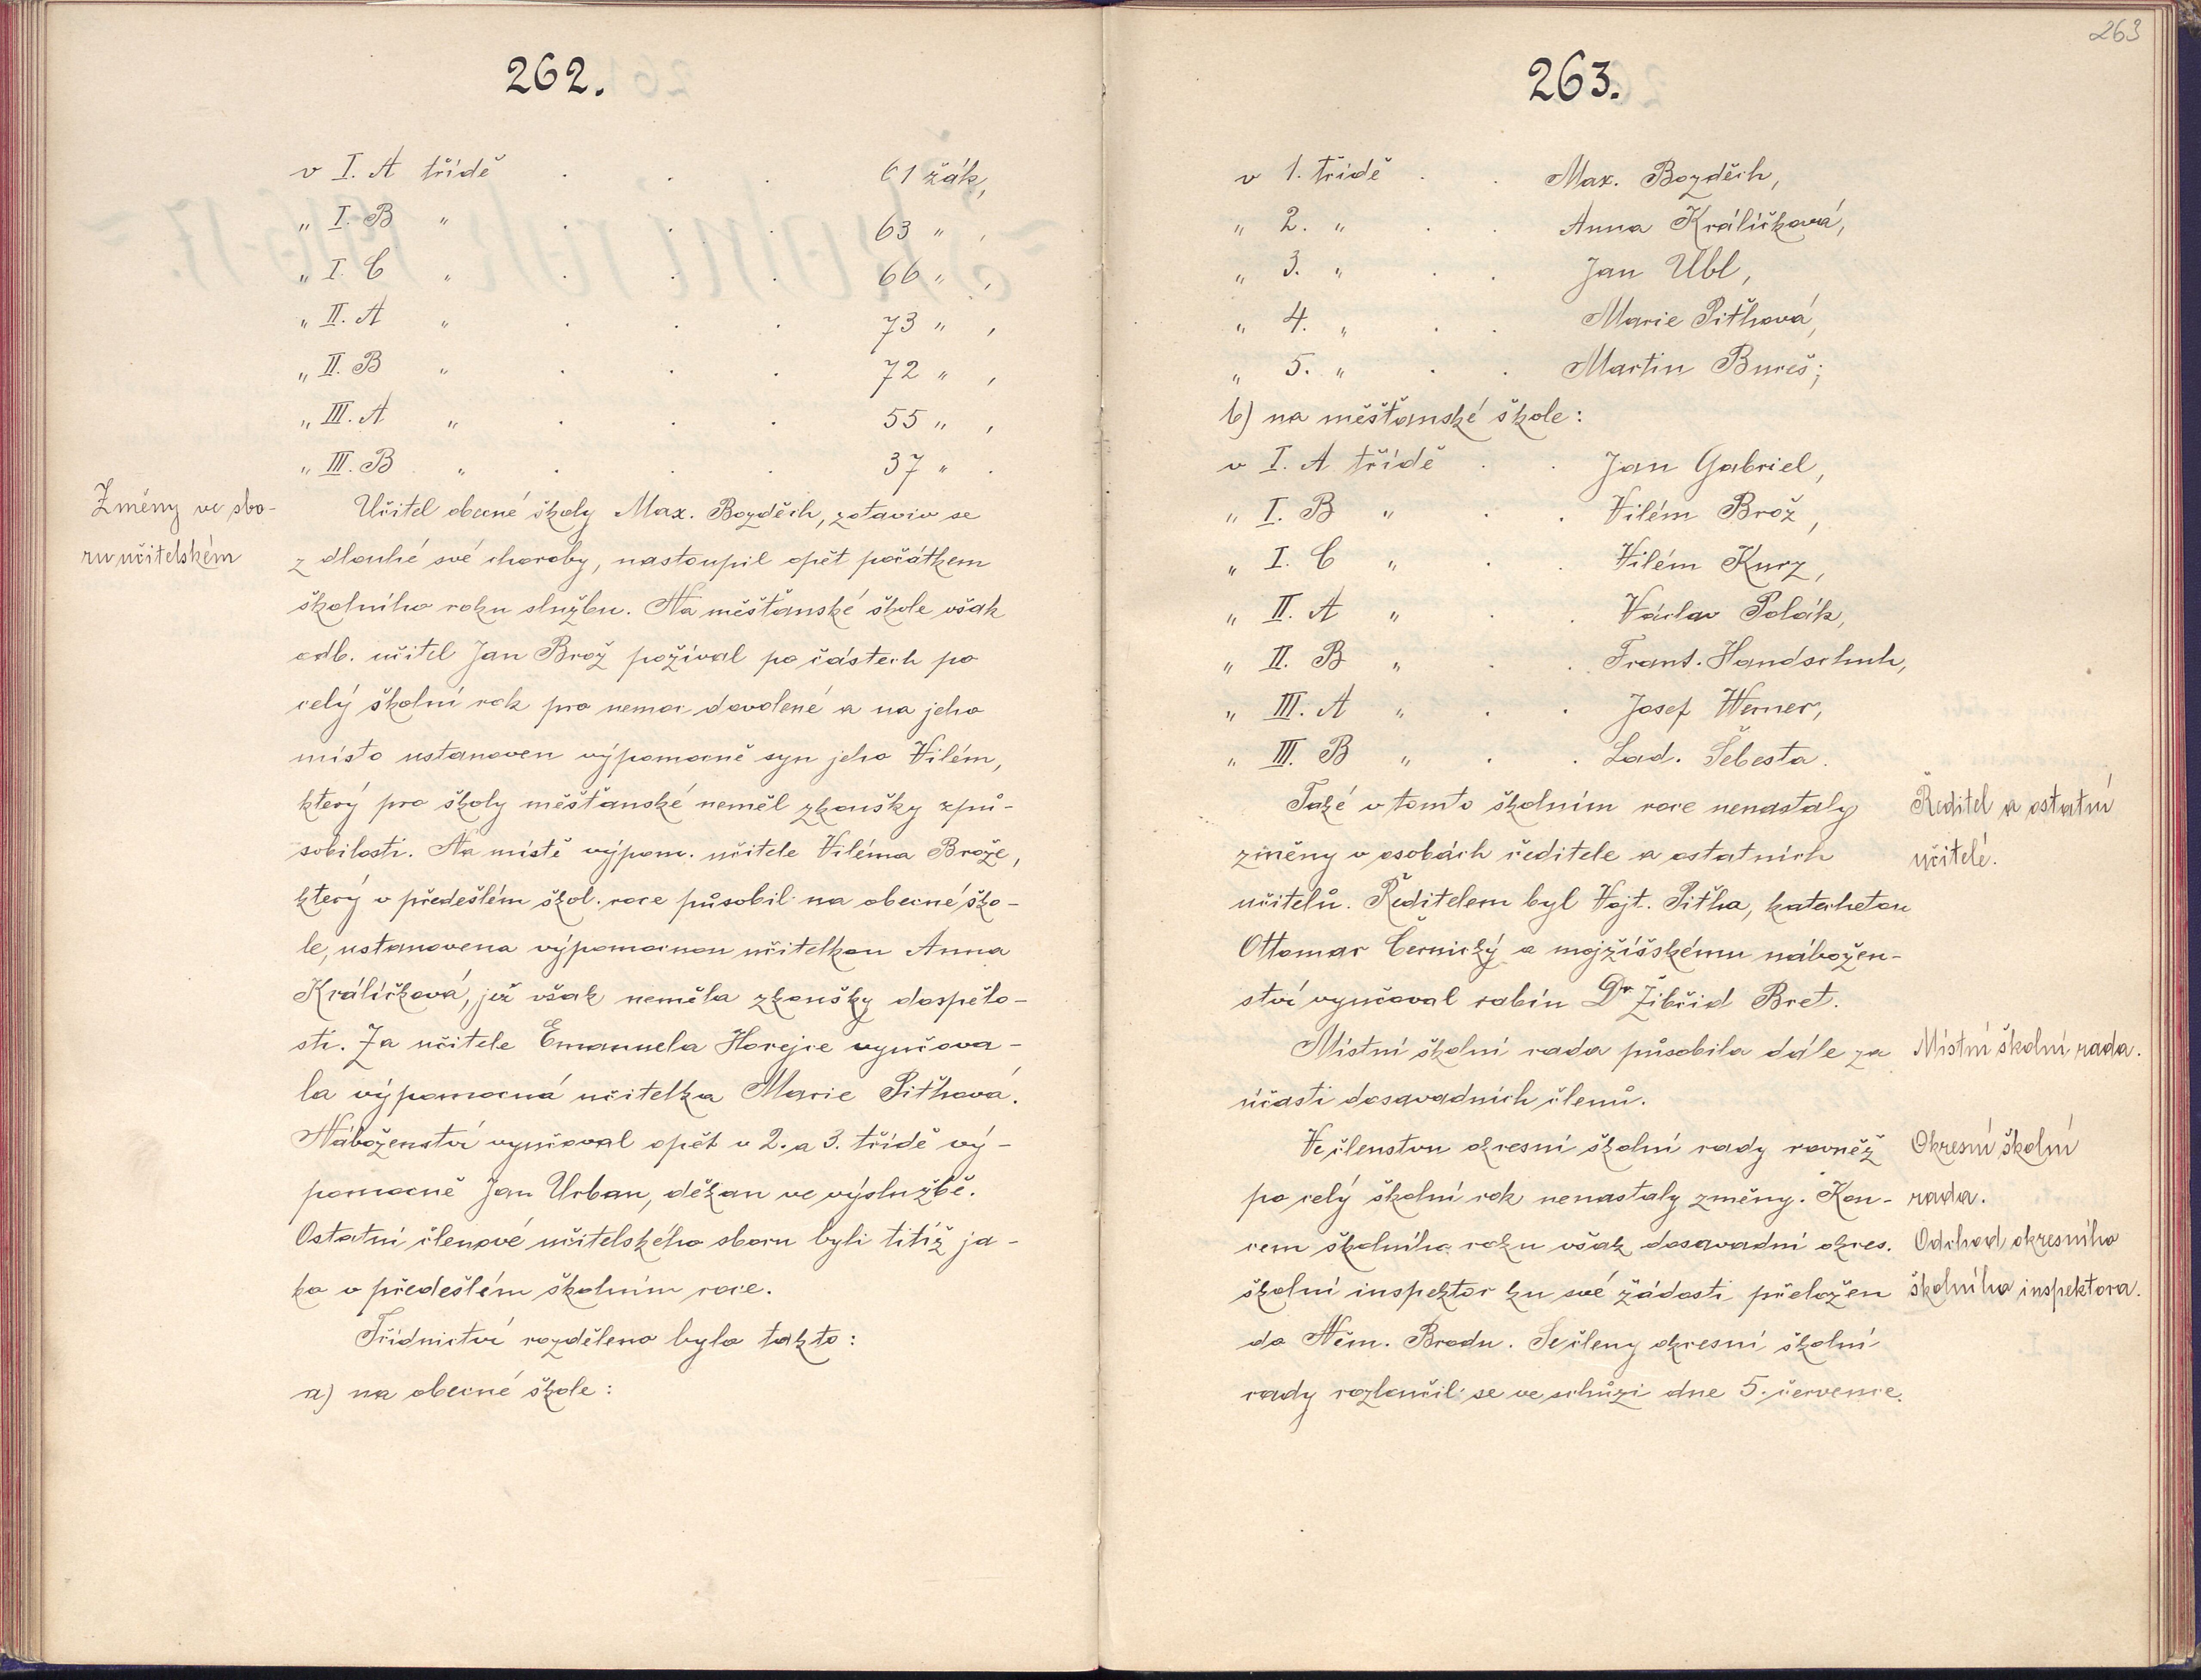 262.
v I. A třídě . . . 61 žák,
„ I. B „ . . . 63 „ ,
„ I. C „ . . . 66 „ ,
„ II. A „ . . . 73 „ ,
„ II. B „ . . . 72 „ ,
„ III. A „ . . . 55 „ ,
„ III. B „ . . . 37 „ .
Změny ve sbo-
ru učitelském
Učitel obecné školy Max. Bozděch, zotaviv se
z dlouhé své choroby, nastoupil opět počátkem
školního roku službu. Na měšťanské škole však
odb. učitel Jan Brož požíval po částech po
celý školní rok pro nemoc dovolené a na jeho
místo ustanoven výpomocně syn jeho Vilém,
který pro školy měšťanské neměl zkoušky způ-
sobilosti. Na místě výpom. učitele Viléma Brože,
který v předešlém škol. roce působil na obecné ško-
le, ustanovena výpomocnou učitelkou Anna
Králíčková, jež však neměla zkoušky dospělo-
sti. Za učitele Emanuela Horejce vyučova-
la výpomocná učitelka Marie Piťhová.
Náboženství vyučoval opět v 2. a 3. třídě vý-
pomocně Jan Urban, děkan ve výslužbě.
Ostatní členové učitelského sboru byli titíž ja-
ko v předešlém školním roce.
Třídnictví rozděleno bylo takto:
a) na obecné škole:
263
263.
v 1. třídě . . Max. Bozděch,
„ 2. „ . . Anna Králíčková,
„ 3. „ . . Jan Ubl,
„ 4. „ . . Marie Piťhová,
„ 5. „ . . Martin Bureš;
b) na měšťanské škole:
v I. A třídě . . Jan Gabriel,
„ I. B „ . . Vilém Brož,
„ I. C „ . . Vilém Kurz,
„ II. A „ . . Václav Polák,
„ II. B „ . . Frant. Handschuh,
„ III. A „ . . Josef Werner,
„ III. B „ . . Lad. Šebesta.
Také v tomto školním roce nenastaly
změny v osobách ředitele a ostatních
učitelů. Ředitelem byl Vojt. Piťha, katechetou
Ottomar Černický a mojžíšskému nábožen-
ství vyučoval rabín Dr Žibřid Bret.
Místní školní rada působila dále za
účasti dosavadních členů.
Ve členstvu okresní školní rady rovněž
po celý školní rok nenastaly změny. Kon-
cem školního roku však dosavadní okres.
školní inspektor ku své žádosti přeložen
do Něm. Brodu. Se členy okresní školní
rady rozloučil se ve schůzi dne 5. července.
Ředitel a ostatní
učitelé.
Místní školní rada.
Okresní školní
rada.
Odchod okresního
školního inspektora.